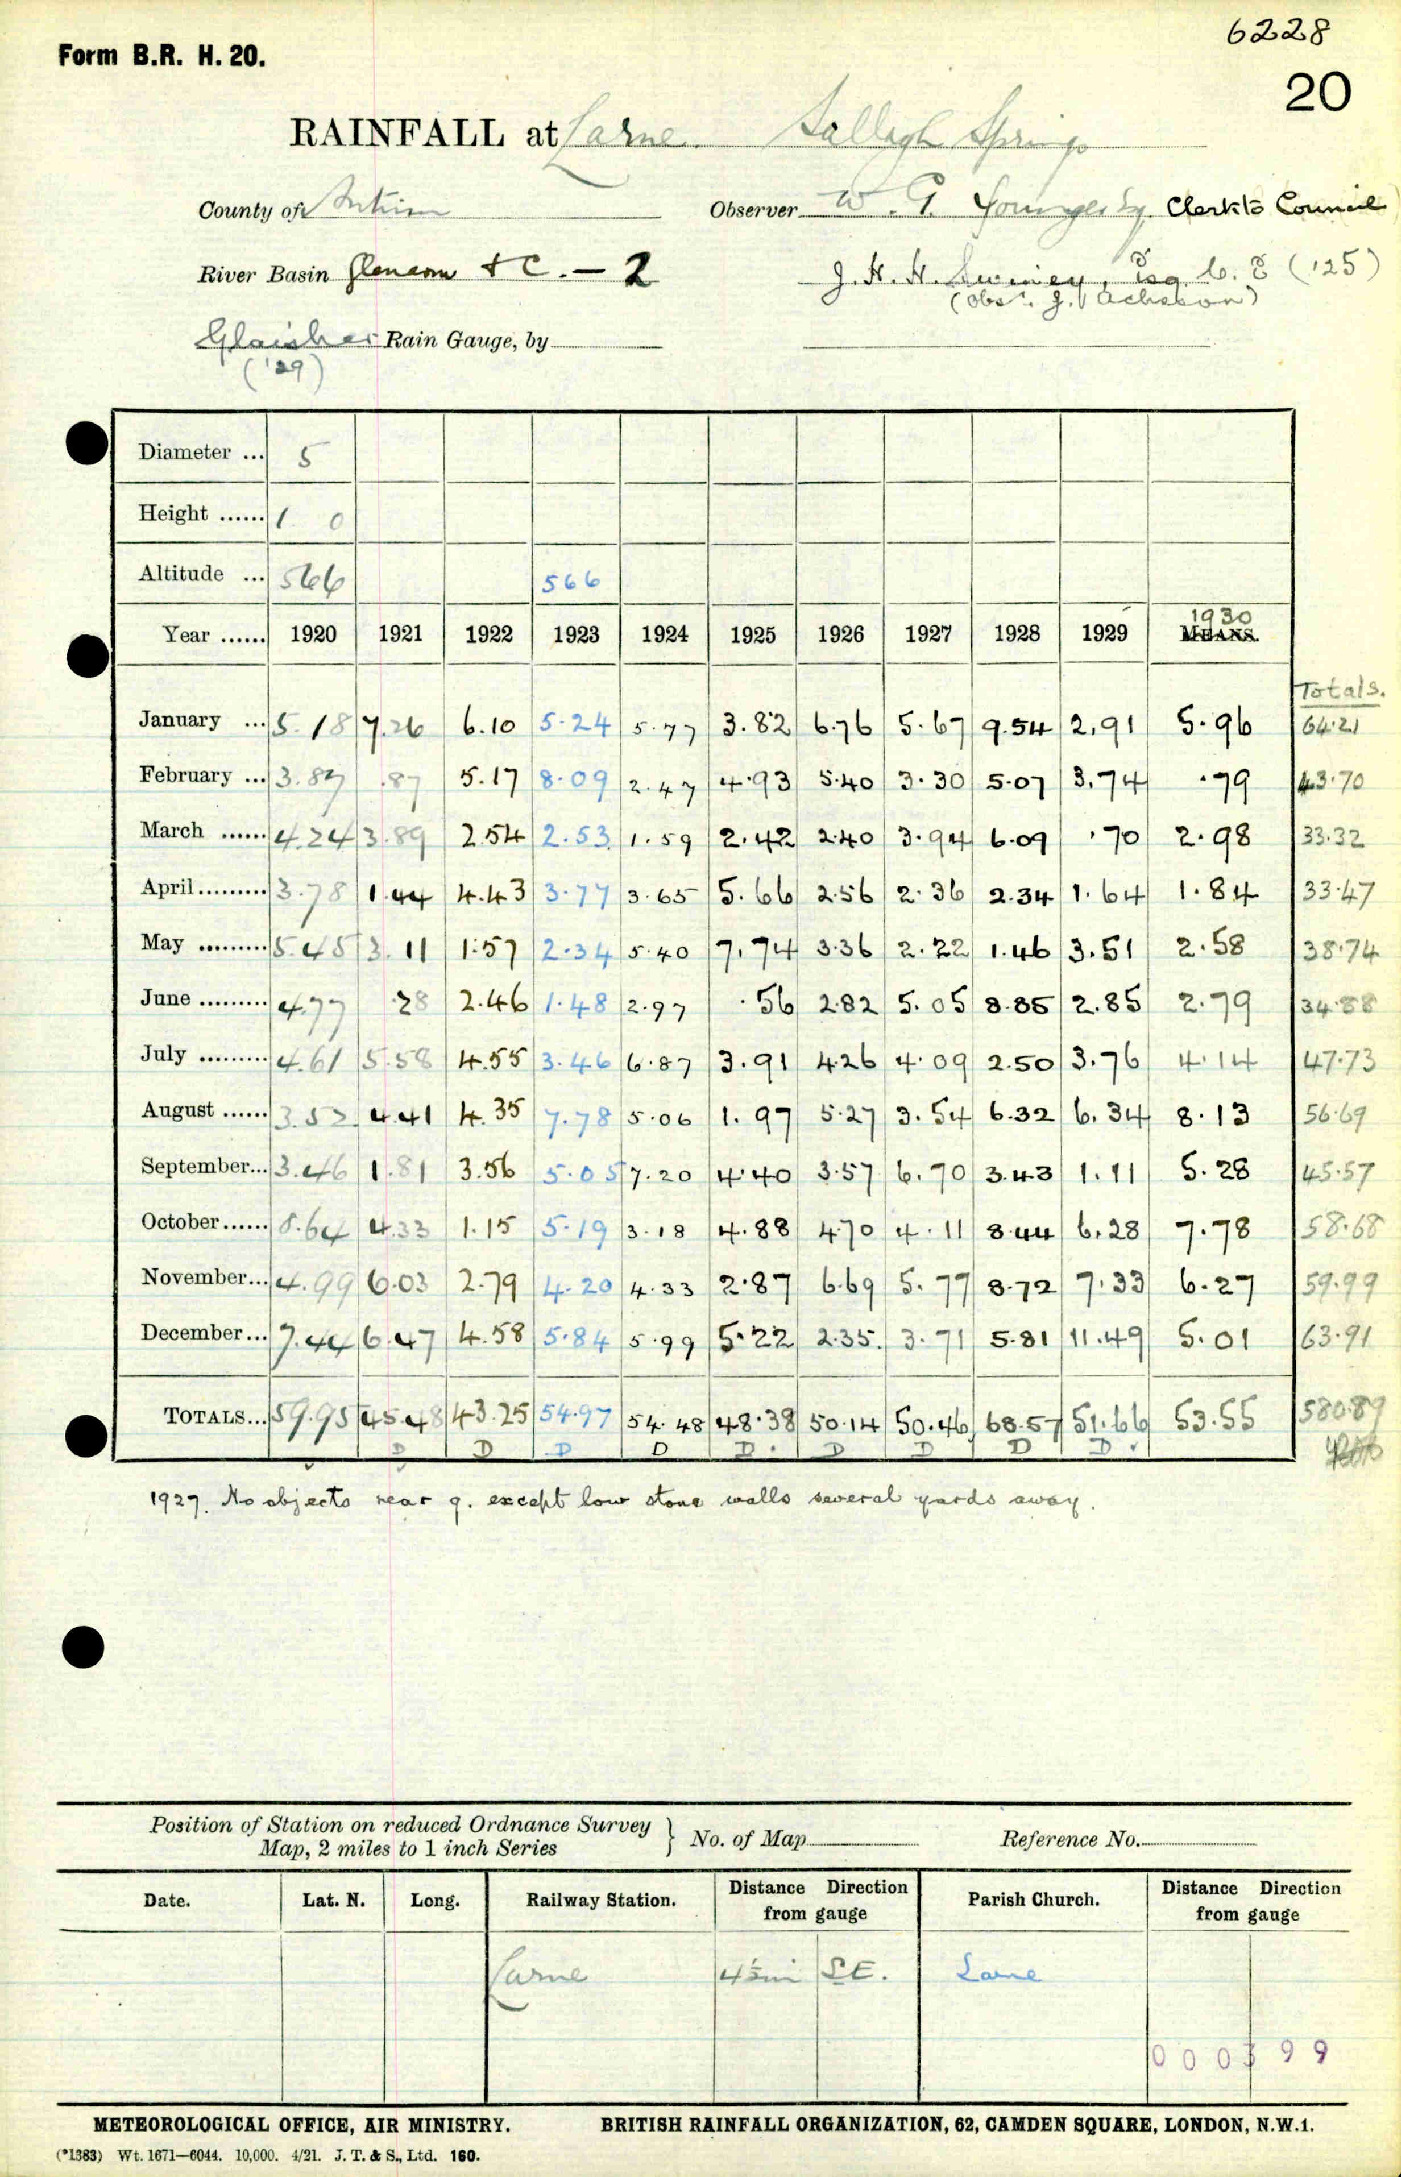 6228
Form B.R. H. 20.
20
RAINFALL at Larne. Sallagh Springs
County of Antrim Observer W. G. Younger Esq. Clerk to Council
River Basin Glenarm + C. — 2 J. H. H. Swiney, Esq. C. E ('25)
(Obsr. J. Acheson)
Glaisher Rain Gauge, by
('29)
Diameter ... 5
Height ...... 1 0
Altitude ... 566 566
Year ...... 1920 1921 1922 1923 1924 1925 1926 1927 1928 1929 MEANS. 1930
Totals.
January ... 5.18 7.26 6.10 5.24 5.77 3.82 6.76 5.67 9.54 2.91 5.96 64.21
February ... 3.87 .87 5.17 8.09 2.47 4.93 5.40 3.30 5.07 3.74 .79 43.70
March ...... 4.24 3.89 2.54 2.53 1.59 2.42 2.40 3.94 6.09 .70 2.98 33.32
April ......... 3.78 1.44 4.43 3.77 3.65 5.66 2.56 2.36 2.34 1.64 1.84 33.47
May ......... 5.45 3.11 1.57 2.34 5.40 7.74 3.36 2.22 1.46 3.51 2.58 38.74
June ......... 4.77 .28 2.46 1.48 2.97 .56 2.82 5.05 8.85 2.85 2.79 34.88
July ......... 4.61 5.58 4.55 3.46 6.87 3.91 4.26 4.09 2.50 3.76 4.14 47.73
August ...... 3.52 4.41 4.35 7.78 5.06 1.97 5.27 3.54 6.32 6.34 8.13 56.69
September... 3.46 1.81 3.56 5.05 7.20 4.40 3.57 6.70 3.43 1.11 5.28 45.57
October...... 8.64 4.33 1.15 5.19 3.18 4.88 4.70 4.11 8.44 6.28 7.78 58.68
November... 4.99 6.03 2.79 4.20 4.33 2.87 6.69 5.77 8.72 7.33 6.27 59.99
December... 7.44 6.47 4.58 5.84 5.99 5.22 2.35 3.71 5.81 11.49 5.01 63.91
TOTALS... 59.95 45.48 43.25 54.97 54.48 48.38 50.14 50.46 68.57 51.66 53.55 580.89
D D D D D D D D D
1927. No objects near g. except low stone walls several yards away.
Position of Station on reduced Ordnance Survey Map, 2 miles to 1 inch Series } No. of Map Reference No.
Date. Lat. N. Long. Railway Station. Distance Direction from gauge Parish Church. Distance Direction from gauge
Larne 4½mi S.E. Larne
000399
METEOROLOGICAL OFFICE, AIR MINISTRY. BRITISH RAINFALL ORGANIZATION, 62, CAMDEN SQUARE, LONDON, N.W.1.
(*1383) Wt. 1671—6044. 10,000. 4/21. J. T. & S., Ltd. 160.